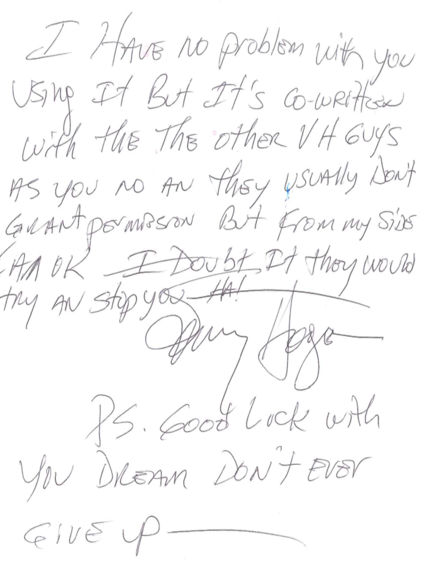 I HAVE NO problem with you
Using It But It's co-written
with the The other VH GUYS
AS YOU NO AN they usually Don't
GRANT permission But from my side
I AM OK I Doubt It they would
try AN stop you HA!
PS. Good Luck with
YOU DREAM DON'T EVER
GIVE UP